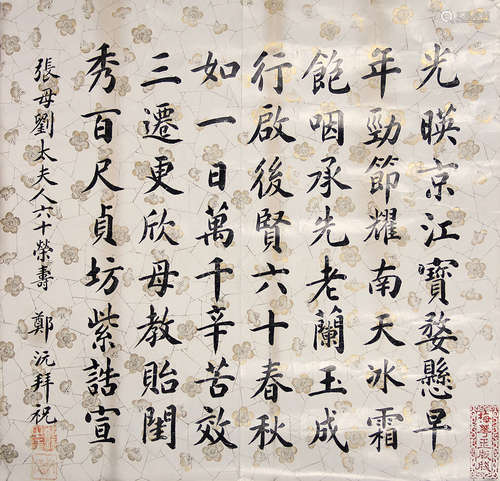 光暎京江寶婺懸早
年勁節耀南天冰霜
飽咽承先老蘭玉成
行啟後賢六十春秋
如一日萬千辛苦效
三遷更欣母教貽閨
秀百尺貞坊紫誥宣
張母劉太夫人六十榮壽 鄭沅拜祝